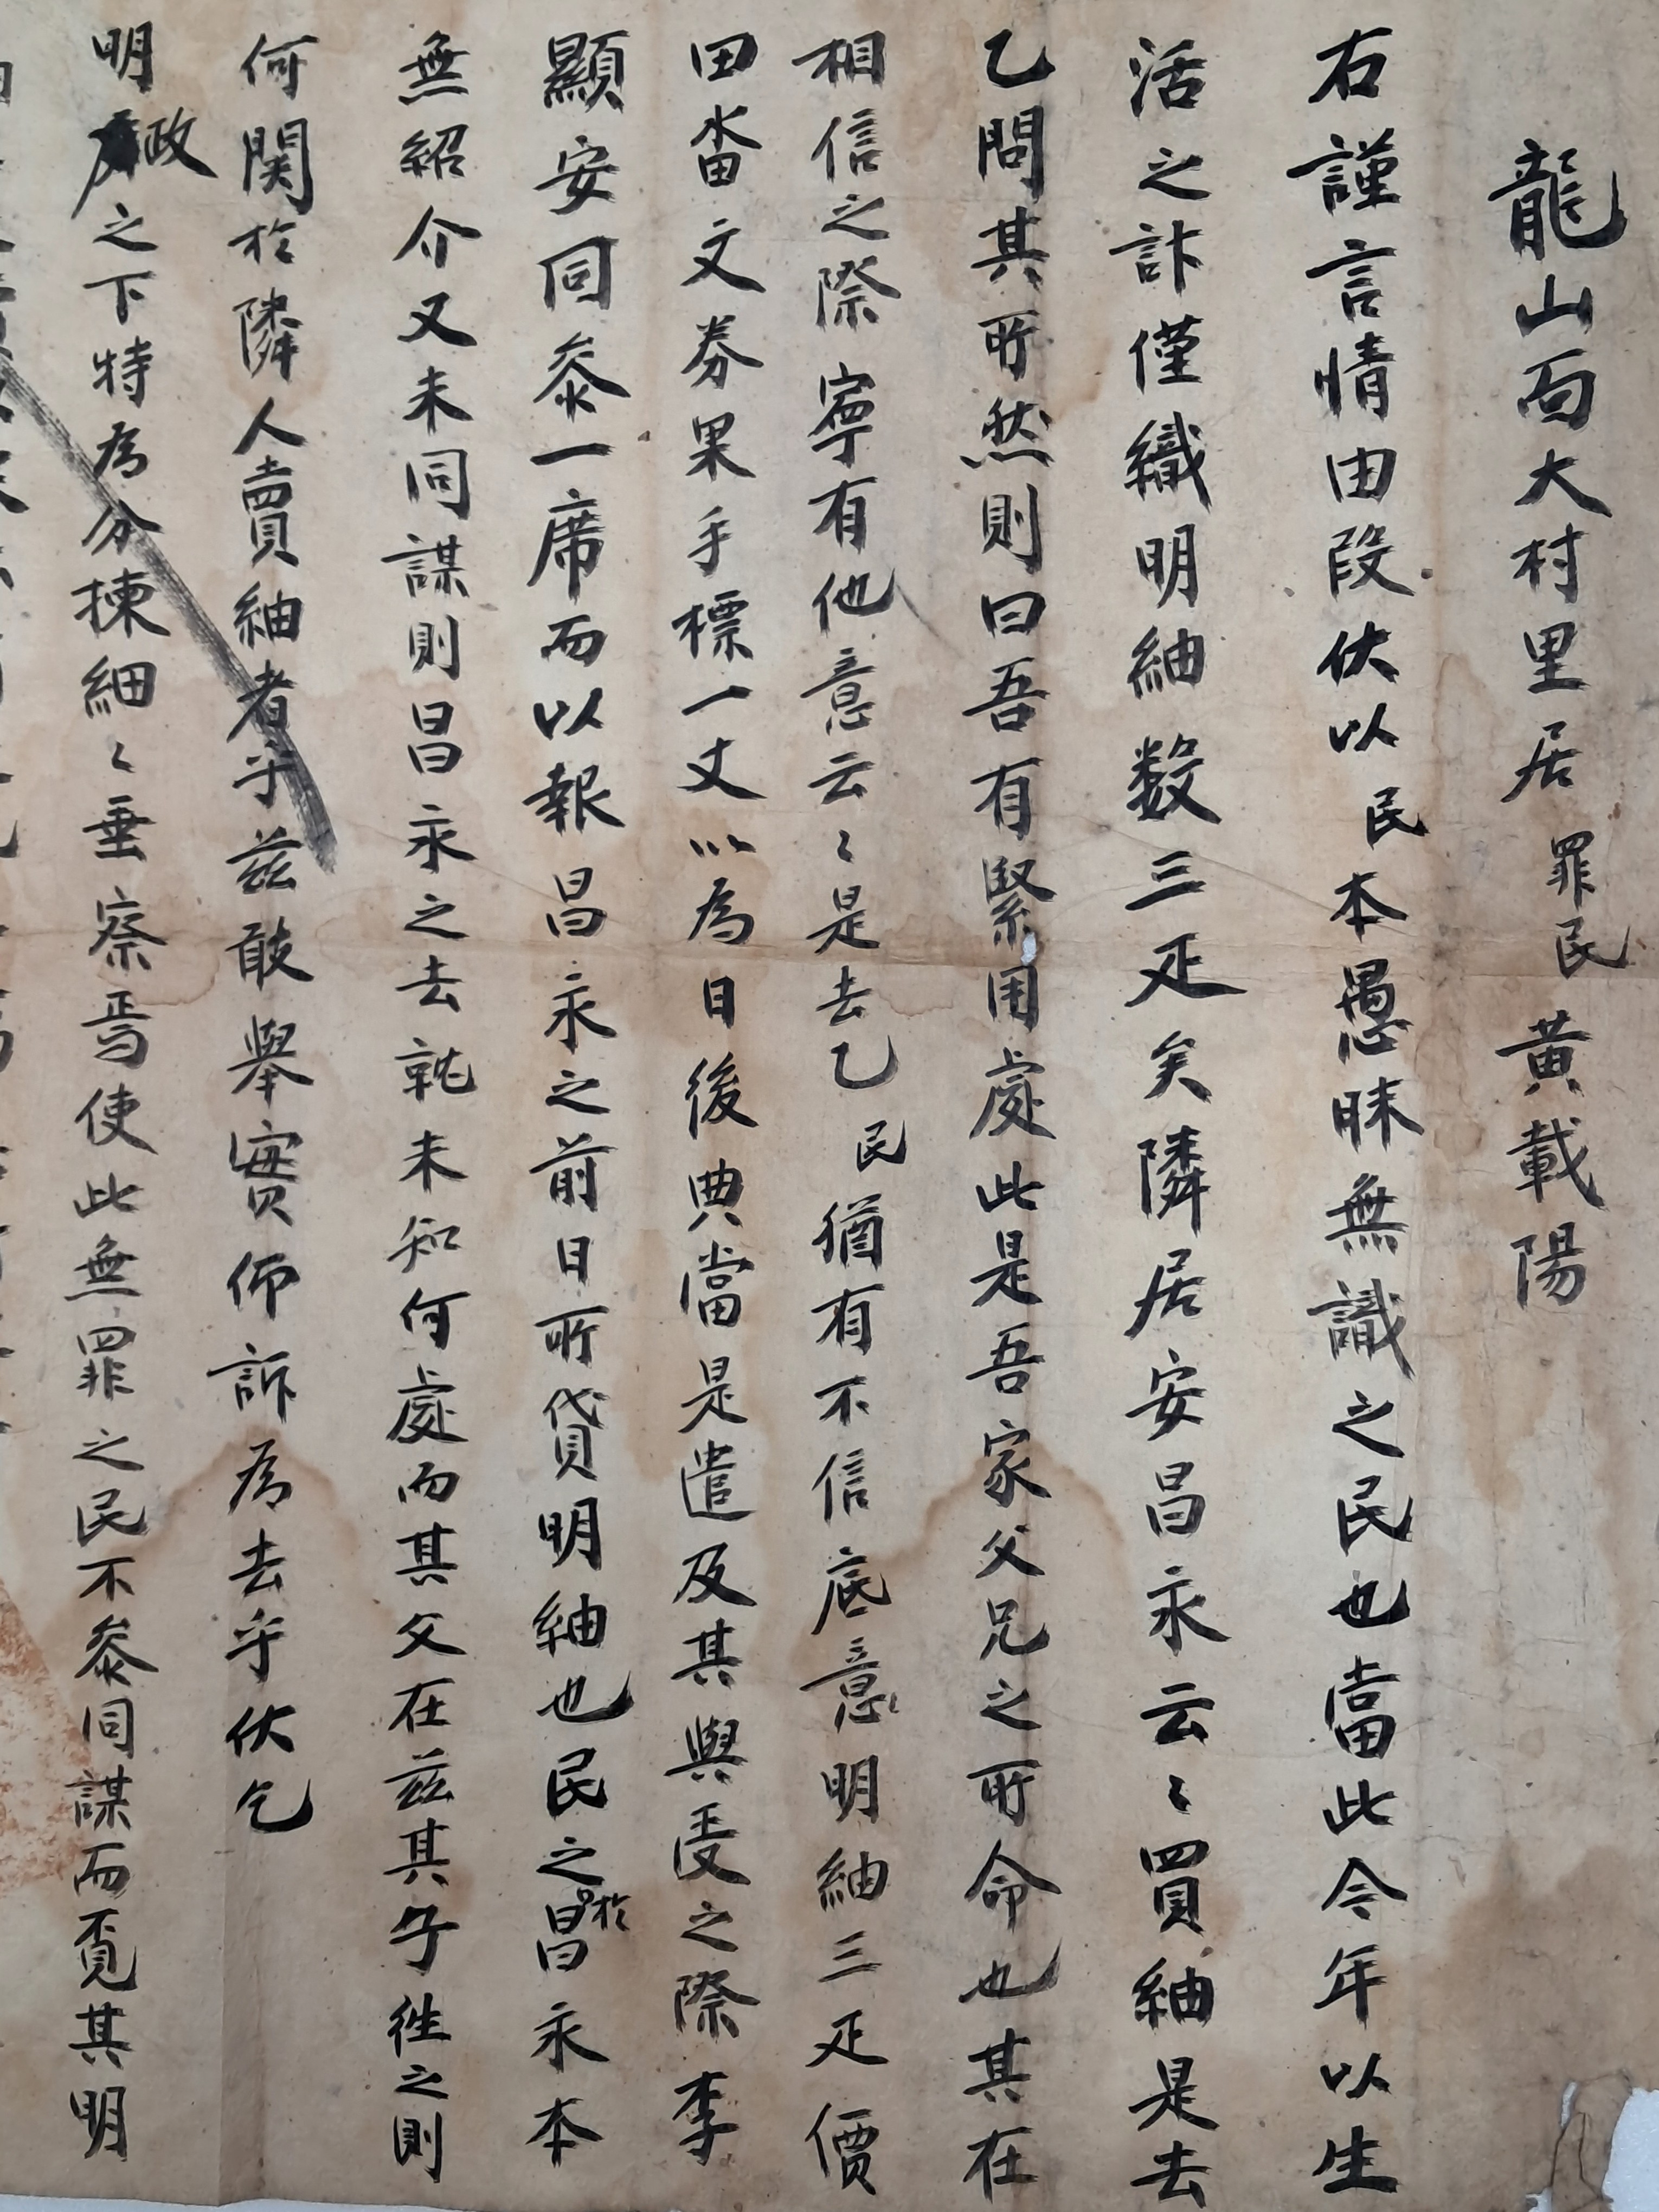 龍山面大村里居罪民黃載陽
右謹言情由段伏以民本愚昧無識之民也當此今年以生
活之計僅織明紬数三疋矣隣居安昌永云〻買紬是去
乙問其所然則曰吾有緊用處此是吾家父兄之所命也其在
相信之際寧有他意云〻是去乙民猶有不信底意明紬三疋價
田畓文券果手標一丈以為日後典當是遣及其與受之際李
顯安同叅一席而以報昌永之前日所貸明紬也民之於昌永本
無紹介又未同謀則昌永之去就未知何處而其父在茲其子徃之則
何関於隣人賣紬者乎茲敢舉實仰訴為去乎伏乞
明政之下特為分揀細〻垂察焉使此無罪之民不叅同謀而覔其明